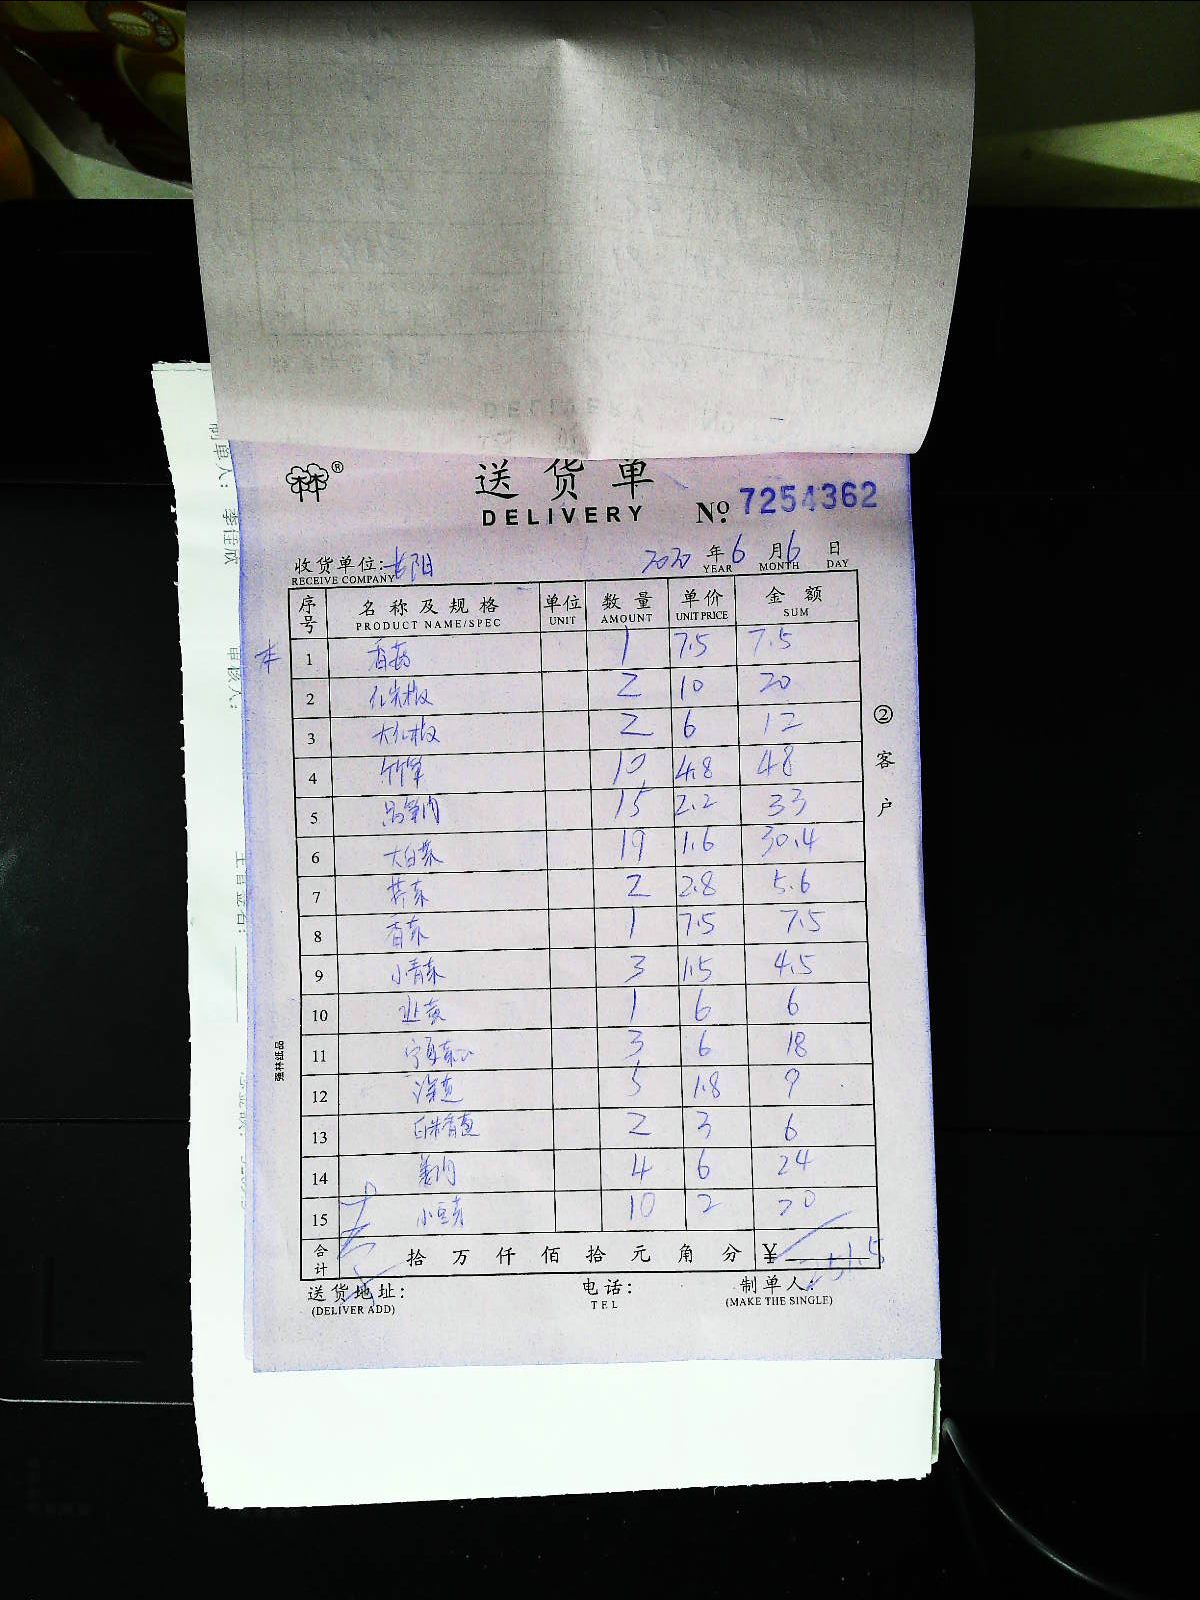 送货单
DELIVERY
No 7254362
收货单位:
RECEIVE COMPANY
2020 年 6 月 6 日
YEAR MONTH DAY
序号 名称及规格 单位 数量 单价 金额
PRODUCT NAME/SPEC UNIT AMOUNT UNIT PRICE SUM
1 香菇 1 7.5 7.5
2 红尖椒 2 10 20
3 大红椒 2 6 12
4 竹笋 10 4.8 48
5 15 2.2 33
6 大白菜 19 1.6 30.4
7 芹菜 2 2.8 5.6
8 香菜 1 7.5 7.5
9 小青菜 3 1.5 4.5
10 韭黄 1 6 6
11 宁夏菜心 3 6 18
12 洋葱 5 1.8 9
13 2 3 6
14 4 6 24
15 10 2 20
合计 拾 万 仟 佰 拾 元 角 分 ¥ 251.5
送货地址:
(DELIVER ADD)
电话:
TEL
制单人:
(MAKE THE SINGLE)
②客户
强林纸品
制单人:
审核人:
主管签名: